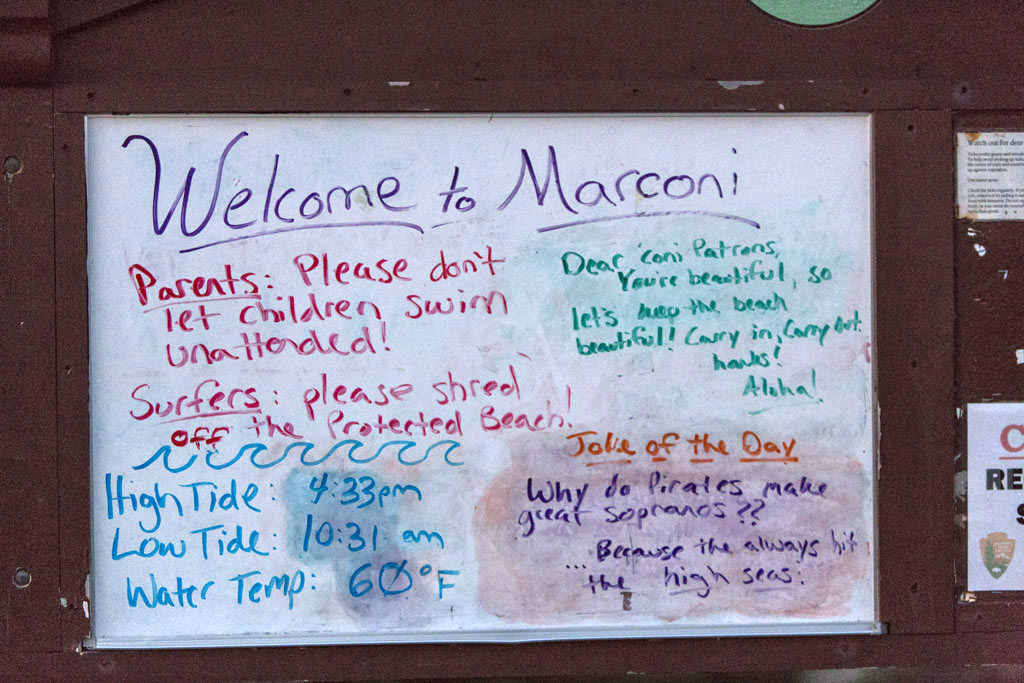 Welcome to Marconi
Parents: Please don't
let children swim
unattended!
Surfers: please shred
off the Protected Beach!
High Tide: 4:33pm
Low Tide: 10:31 am
Water Temp: 60°F
Dear 'Coni Patrons,
You're beautiful, so
let's keep the beach
beautiful! Carry in, Carry out.
hanks!
Aloha!
Joke of the Day
Why do Pirates make
great sopranos??
...Because the always hit
the high seas.
Watch out for deer
C
RE
S